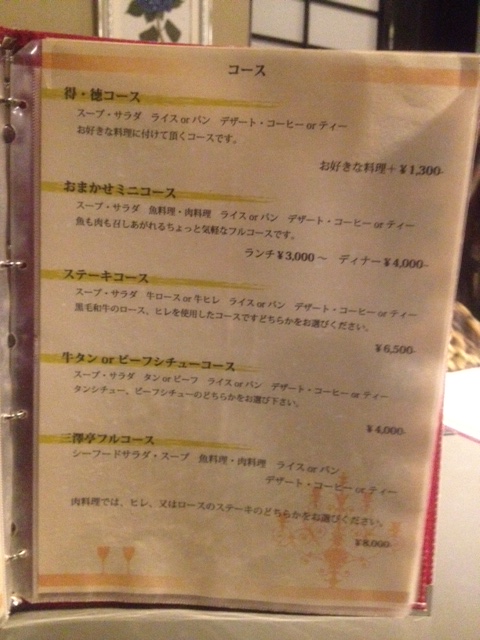 コース
得・徳コース
スープ・サラダ ライス or パン デザート・コーヒー or ティー
お好きな料理に付けて頂くコースです。
お好きな料理＋¥1,300-
おまかせミニコース
スープ・サラダ 魚料理・肉料理 ライス or パン デザート・コーヒー or ティー
魚も肉も召しあがれるちょっと気軽なフルコースです。
ランチ¥3,000～ ディナー¥4,000-
ステーキコース
スープ・サラダ 牛ロース or 牛ヒレ ライス or パン デザート・コーヒー or ティー
黒毛和牛のロース、ヒレを使用したコースですどちらかをお選びください。
¥6,500-
牛タン or ビーフシチューコース
スープ・サラダ タン or ビーフ ライス or パン デザート・コーヒー or ティー
タンシチュー、ビーフシチューのどちらかをお選び下さい。
¥4,000-
三澤亭フルコース
シーフードサラダ・スープ 魚料理・肉料理 ライス or パン
デザート・コーヒー or ティー
肉料理では、ヒレ、又はロースのステーキのどちらかをお選びください。
¥8,000-